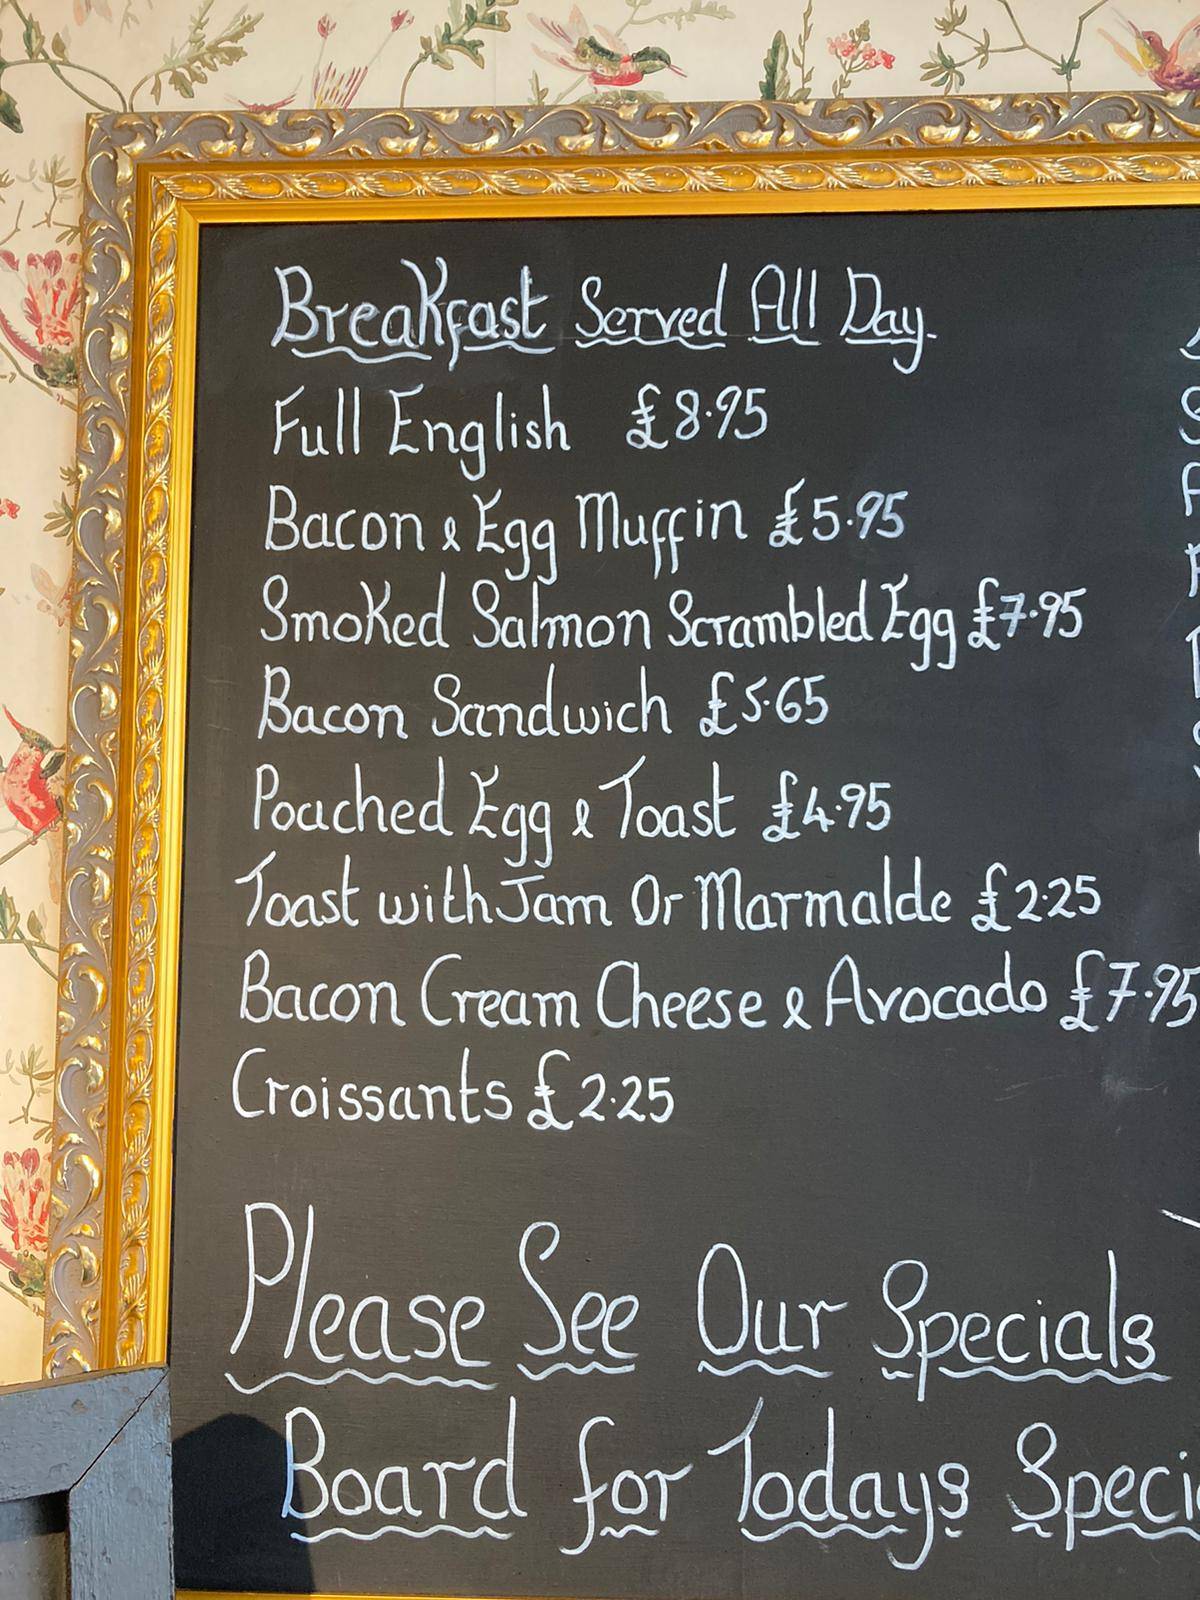 Breakfast Served All Day.
Full English £8.95
Bacon & Egg Muffin £5.95
Smoked Salmon Scrambled Egg £7.95
Bacon Sandwich £5.65
Poached Egg & Toast £4.95
Toast with Jam Or Marmalde £2.25
Bacon Cream Cheese & Avocado £7.95
Croissants £2.25
Please See Our Specials
Board for Todays Speci